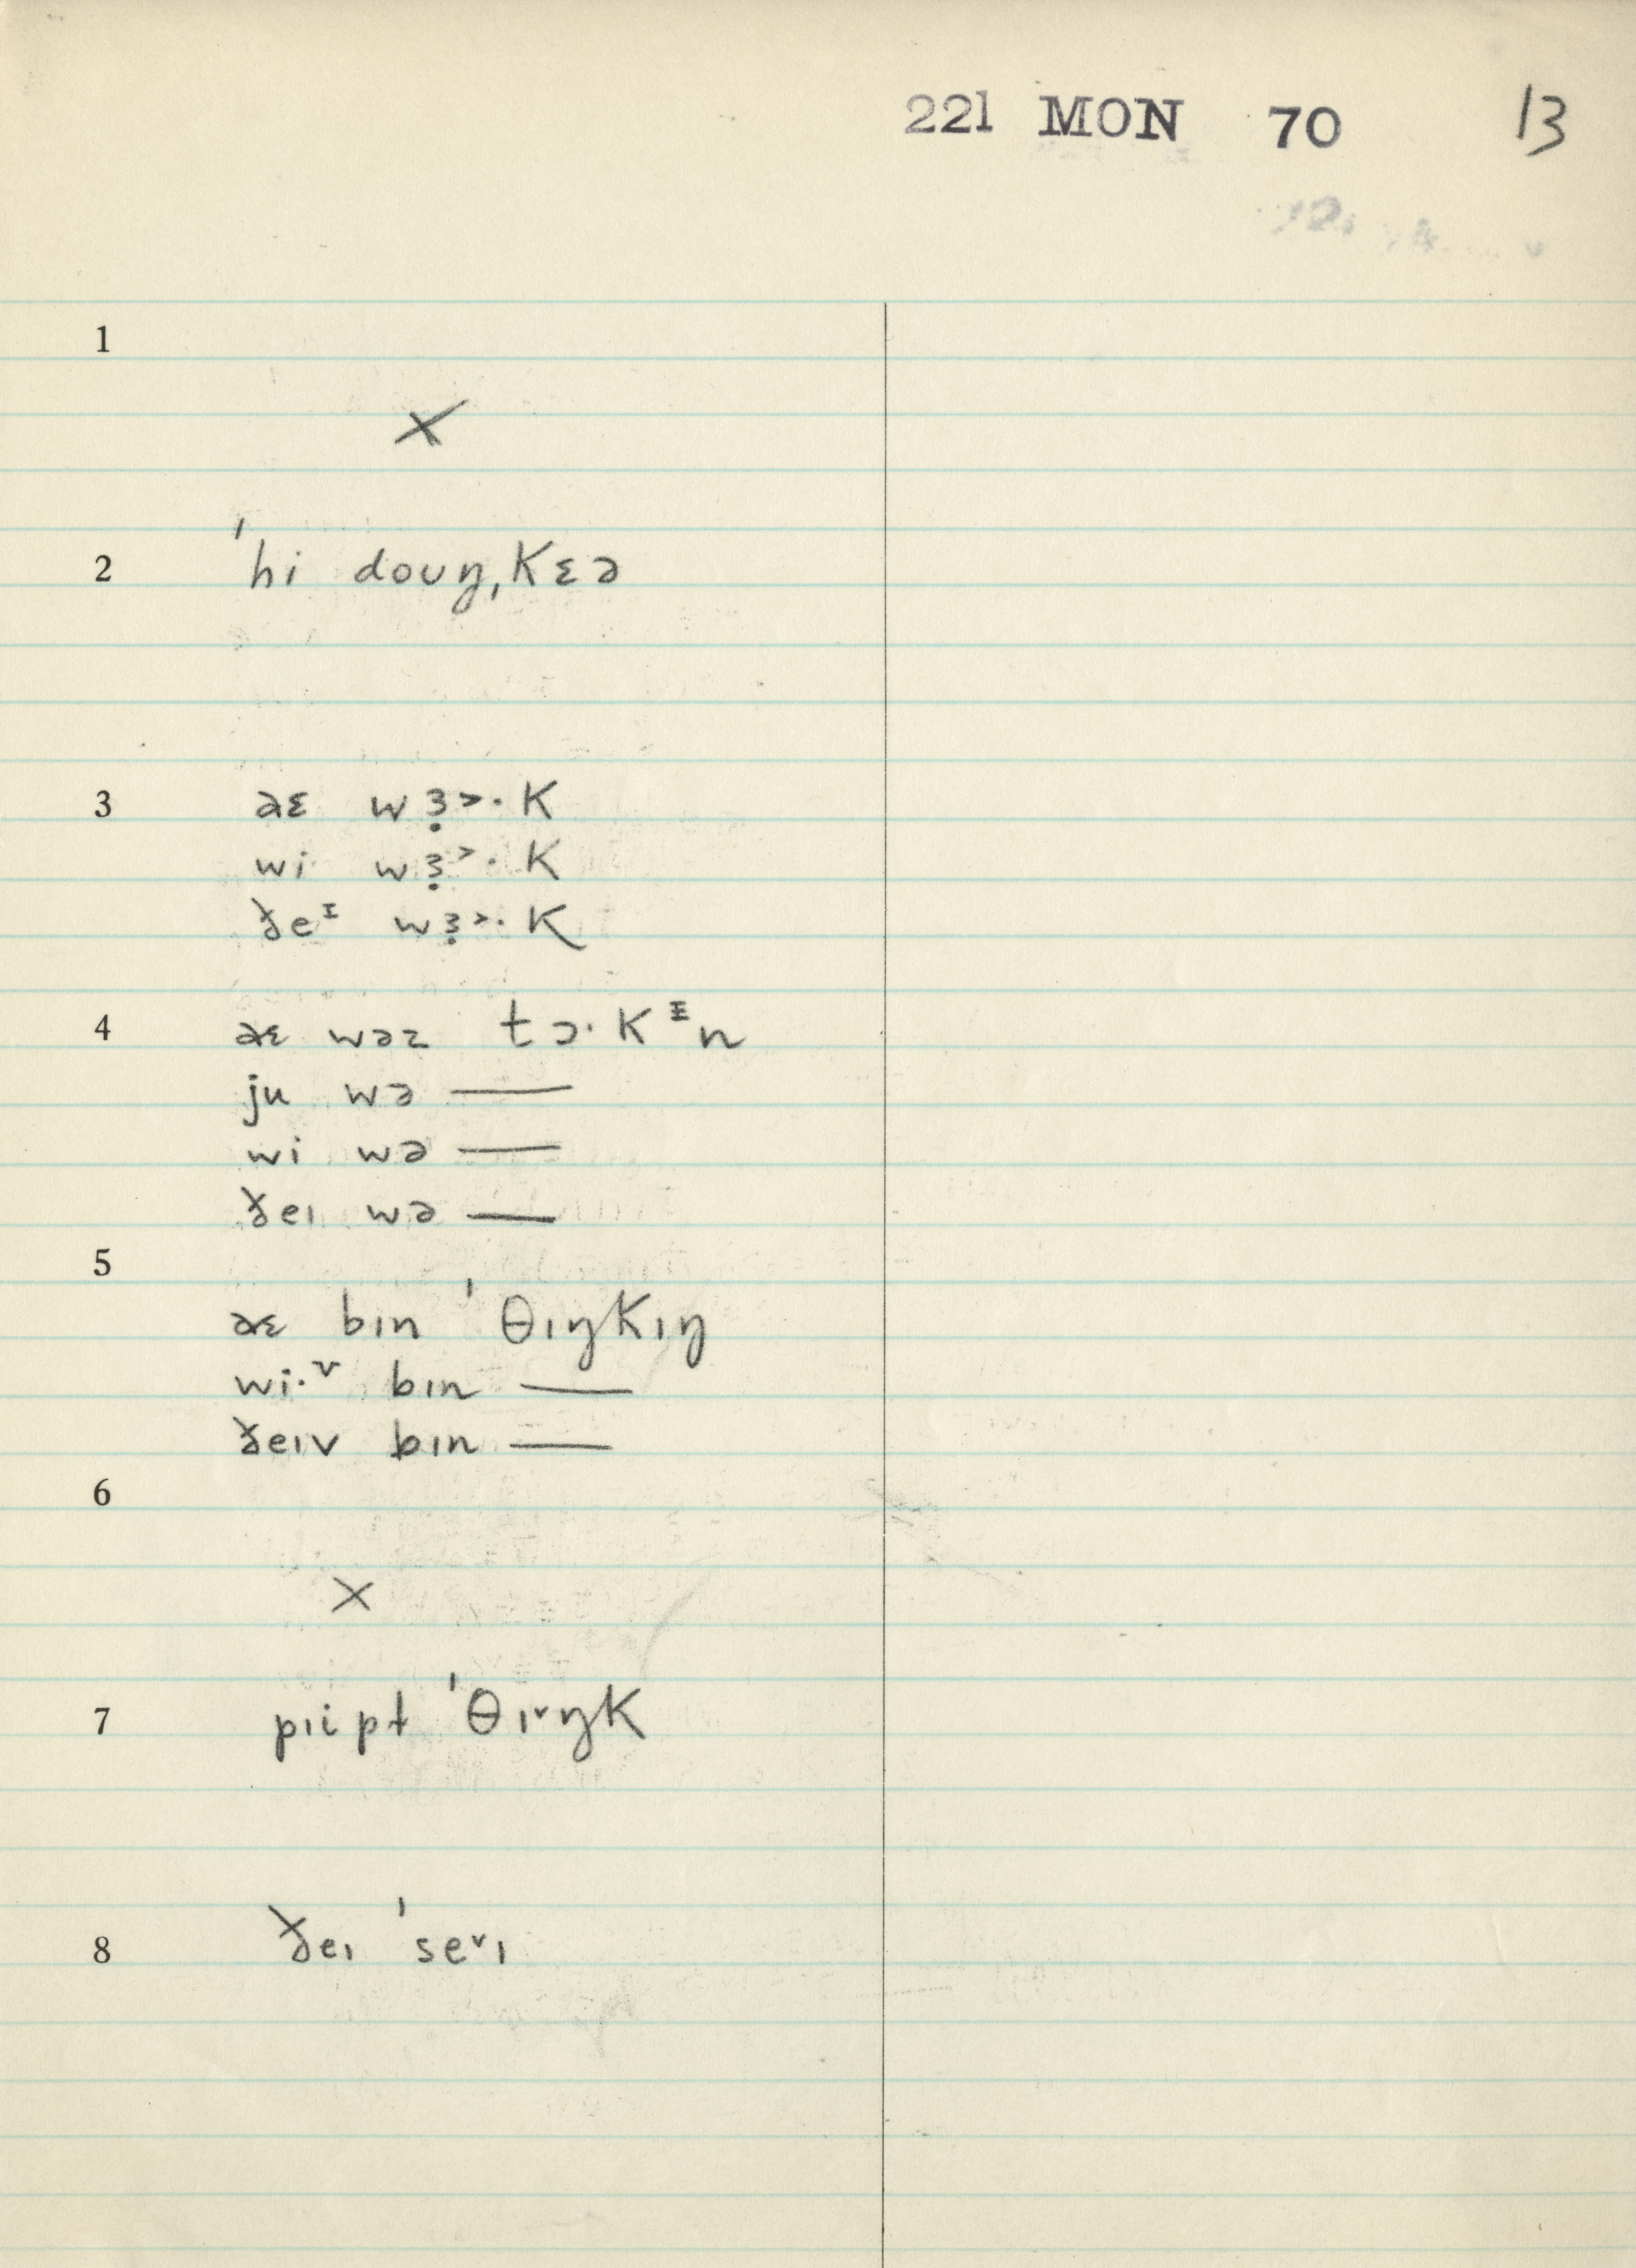 221 MON 70 13
1
×
2 ˈhi doʊŋˌkɛə
3 aɛ wɜ̣˃·k
wi wɜ̣˃·k
ðeᴵ wɜ̣˃·k
4 aɛ wəz tɔ·kᵻn
ju wə —
wi wə —
ðeɪ wə —
5
aɛ bɪn ˈθɪŋkɪŋ
wi·ᵛ bɪn —
ðeɪv bɪn —
6
×
7 pɪipt ˈθɪ˅ŋk
8 ðeɪ ˈse˅ɪ